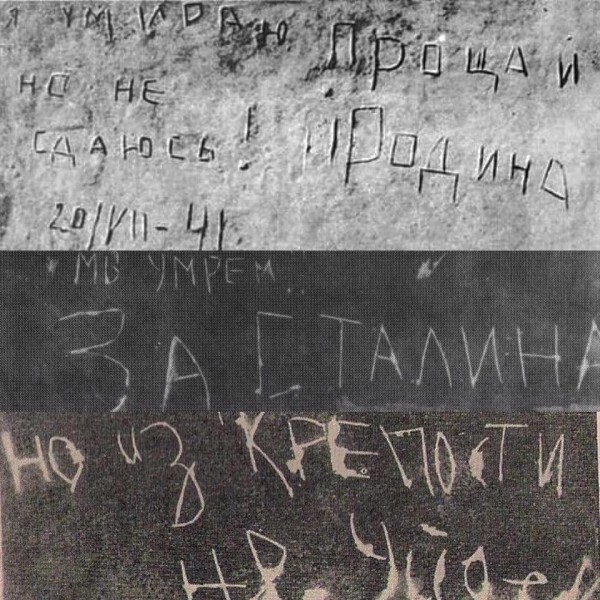 Я УМИРАЮ
НО НЕ
СДАЮСЬ!
20/VII-41
ПРОЩАЙ
РОДИНА
МЫ УМРЕМ..
ЗА СТАЛИНА
НО ИЗ КРЕПОСТИ
НЕ УЙДЕМ